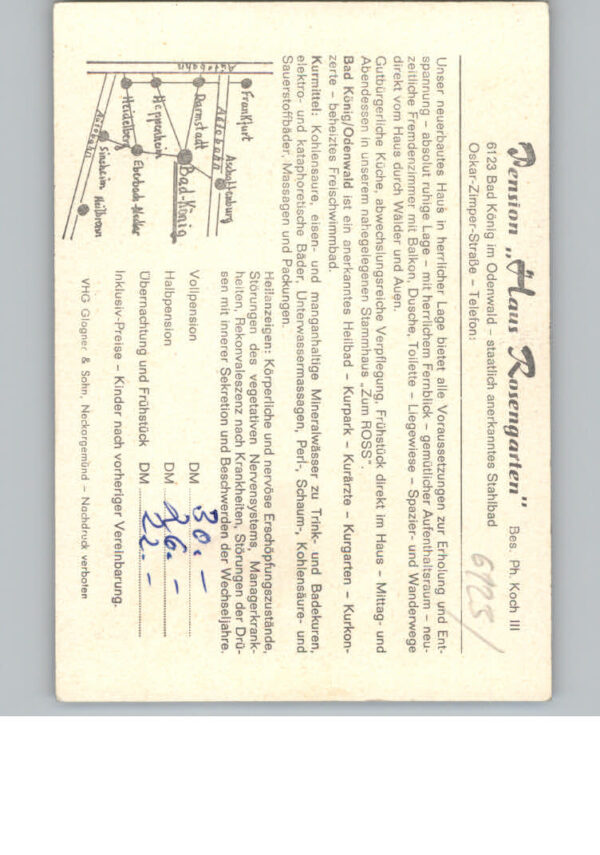 Pension „Haus Rosengarten” Bes. Ph. Koch III
6123 Bad König im Odenwald - staatlich anerkanntes Stahlbad
Oskar-Zimper-Straße – Telefon:
6125/
Unser neuerbautes Haus in herrlicher Lage bietet alle Voraussetzungen zur Erholung und Ent-
spannung – absolut ruhige Lage – mit herrlichem Fernblick – gemütlicher Aufenthaltsraum – neu-
zeitliche Fremdenzimmer mit Balkon, Dusche, Toilette – Liegewiese – Spazier- und Wanderwege
direkt vom Haus durch Wälder und Auen.
Gutbürgerliche Küche, abwechslungsreiche Verpflegung, Frühstück direkt im Haus – Mittag- und
Abendessen in unserem nahegelegenen Stammhaus „Zum ROSS”.
Bad König/Odenwald ist ein anerkanntes Heilbad – Kurpark – Kurärzte – Kurgarten – Kurkon-
zerte – beheiztes Freischwimmbad.
Kurmittel: Kohlensaure, eisen- und manganhaltige Mineralwässer zu Trink- und Badekuren,
elektro- und kataphoretische Bäder, Unterwassermassagen, Perl-, Schaum-, Kohlensäure- und
Sauerstoffbäder, Massagen und Packungen.
Heilanzeigen: Körperliche und nervöse Erschöpfungszustände,
Störungen des vegetativen Nervensystems, Managerkrank-
heiten, Rekonvaleszenz nach Krankheiten, Störungen der Drü-
sen mit innerer Sekretion und Beschwerden der Wechseljahre.
Vollpension DM 30.-
Halbpension DM 26.-
Übernachtung und Frühstück DM 22.-
Inklusiv-Preise – Kinder nach vorheriger Vereinbarung.
VHG Glogner & Sohn, Neckargemünd – Nachdruck verboten
Frankfurt
Aschaffenburg
Autobahn
Autobahn
Darmstadt
Bad-König
Heppenheim
Eberbach-Neckar
Heidelberg
Sinsheim
Heilbronn
Autobahn